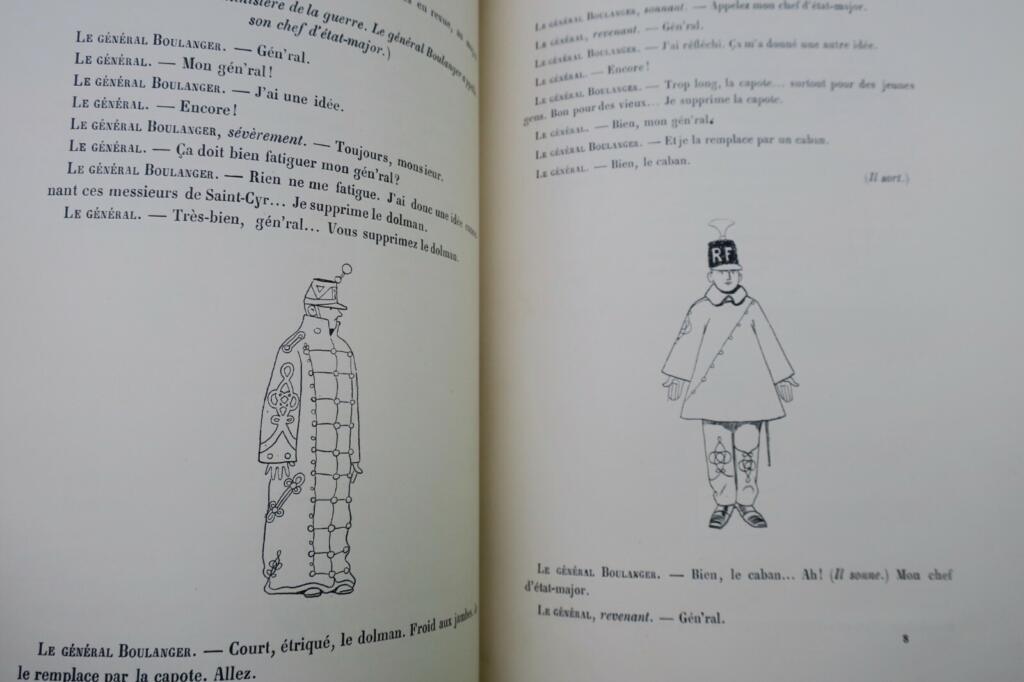 en revue, au
ministère de la guerre. Le général Boulanger
son chef d'état-major.)
LE GÉNÉRAL BOULANGER. — Gén'ral.
LE GÉNÉRAL. — Mon gén'ral!
LE GÉNÉRAL BOULANGER. — J'ai une idée.
LE GÉNÉRAL. — Encore!
LE GÉNÉRAL BOULANGER, sévèrement. — Toujours, monsieur.
LE GÉNÉRAL. — Ça doit bien fatiguer mon gén'ral?
LE GÉNÉRAL BOULANGER. — Rien ne me fatigue. J'ai donc une idée
nant ces messieurs de Saint-Cyr... Je supprime le dolman.
LE GÉNÉRAL. — Très-bien, gén'ral... Vous supprimez le dolman.
LE GÉNÉRAL BOULANGER. — Court, étriqué, le dolman. Froid aux jambes.
le remplace par la capote. Allez.
LE GÉNÉRAL BOULANGER, sonnant. — Appelez mon chef d'état-major.
LE GÉNÉRAL, revenant. — Gén'ral.
LE GÉNÉRAL BOULANGER. — J'ai réfléchi. Ça m'a donné une autre idée.
LE GÉNÉRAL. — Encore!
LE GÉNÉRAL BOULANGER. — Trop long, la capote... surtout pour des jeunes
gens. Bon pour des vieux... Je supprime la capote.
LE GÉNÉRAL. — Bien, mon gén'ral.
LE GÉNÉRAL BOULANGER. — Et je la remplace par un caban.
LE GÉNÉRAL. — Bien, le caban.
(Il sort.)
RF
LE GÉNÉRAL BOULANGER. — Bien, le caban... Ah! (Il sonne.) Mon chef
d'état-major.
LE GÉNÉRAL, revenant. — Gén'ral.
8